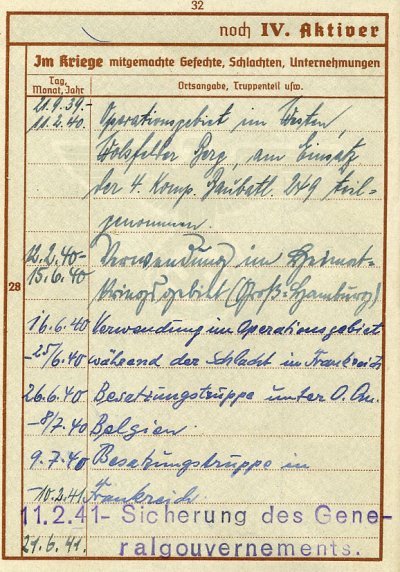 32
noch IV. Aktiver
Im Kriege mitgemachte Gefechte, Schlachten, Unternehmungen
Tag, Monat, Jahr
Ortsangabe, Truppenteil usw.
21.9.39.-
11.2.40.
Operationsgebiet im Westen,
Wolsfelder Berg, am Einsatz
der 4. Komp. Baubatl. 249 teil-
genommen.
12.2.40-
15.6.40
Verwendung im Heimat-
kriegsgebiet (Groß-Hamburg)
28
16.6.40 Verwendung im Operationsgebiet
-25/6.40 während der Schlacht in Frankreich
26.6.40 Besatzungstruppe unter O.
-8/7.40 Belgien.
9.7.40 Besatzungstruppe in
-10.2.41. Frankreich
11.2.41- Sicherung des Gene-
21.6.41. ralgouvernements.